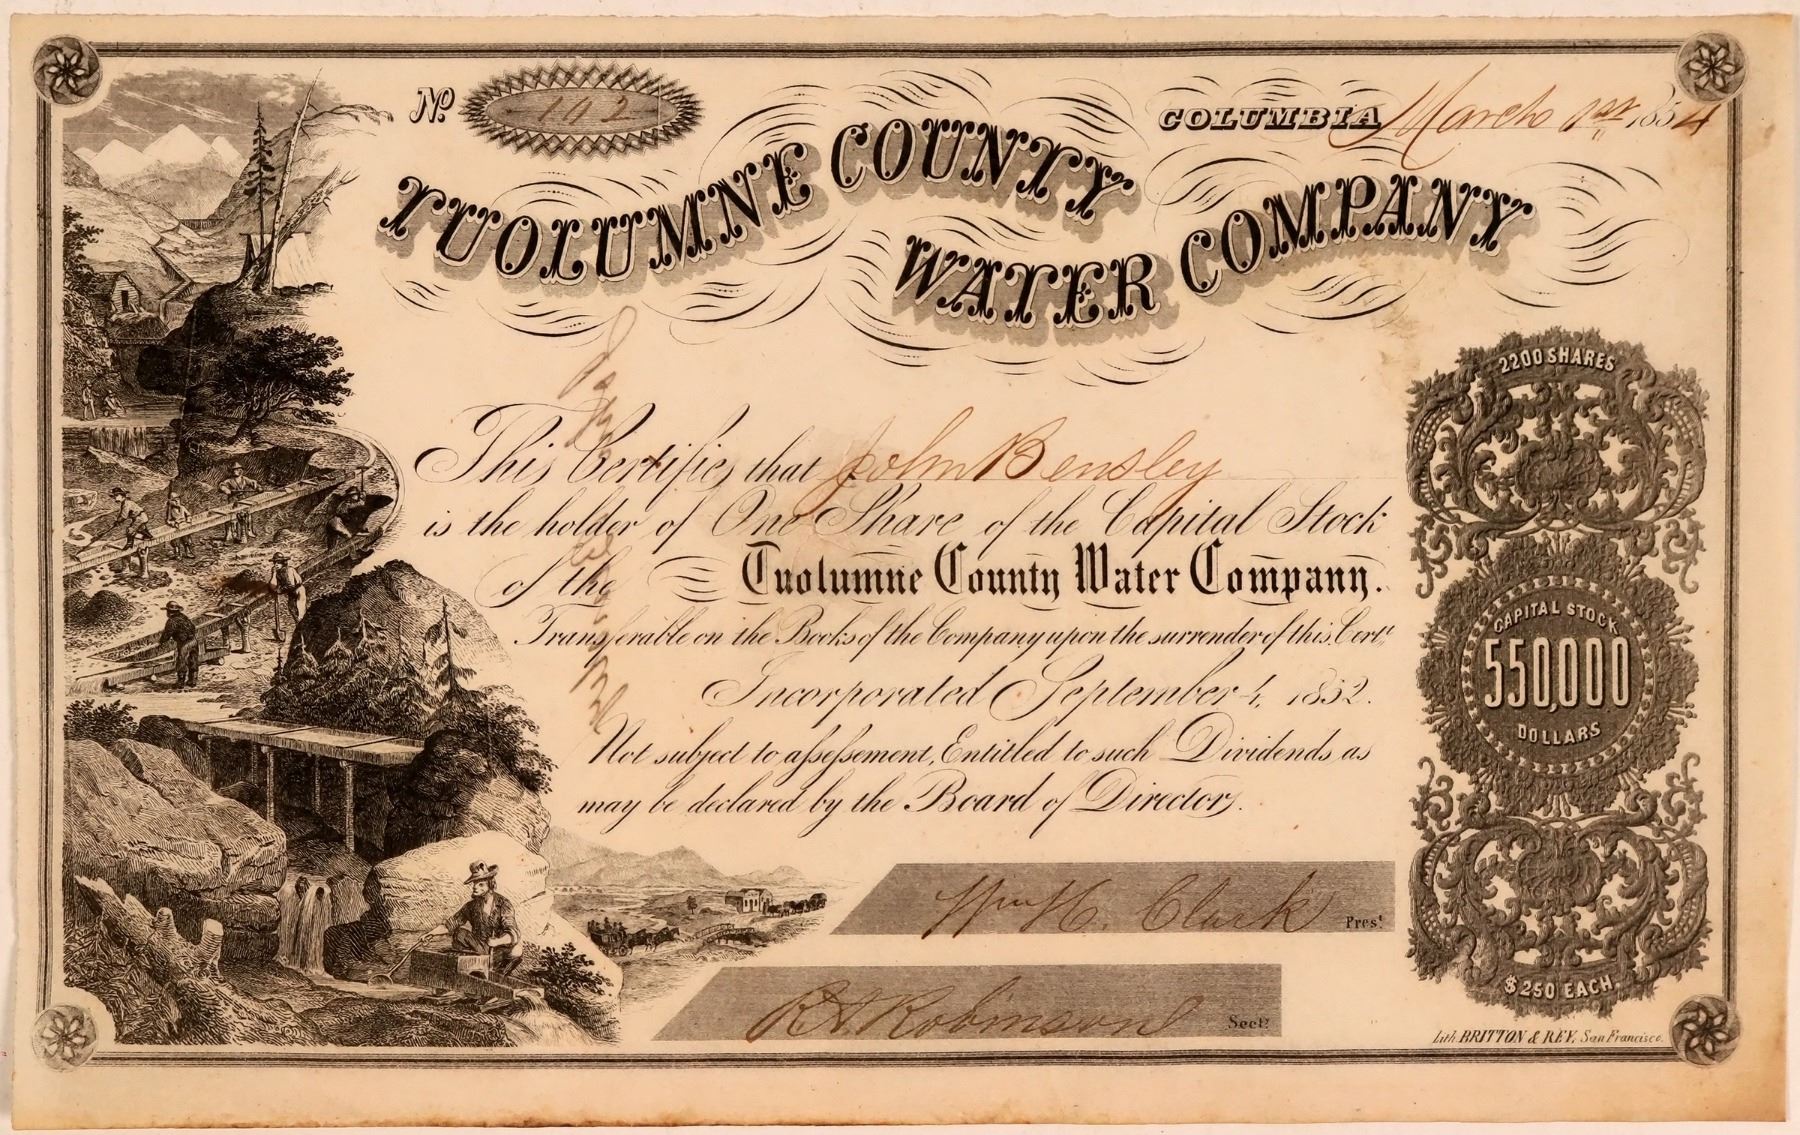 No. 102
COLUMBIA March 1st 1854
TUOLUMNE COUNTY
WATER COMPANY
2200 SHARES
This Certifies that John Bensley
is the holder of One Share of the Capital Stock
of the Tuolumne County Water Company.
Transferable on the Books of the Company upon the surrender of this Cert.
Incorporated September 4, 1852.
Not subject to assessement, Entitled to such Dividends as
may be declared by the Board of Directors.
CAPITAL STOCK
550,000
DOLLARS
$250 EACH.
Wm H. Clark Prest
R A Robinson Secty
Lith. BRITTON & REY, San Francisco.